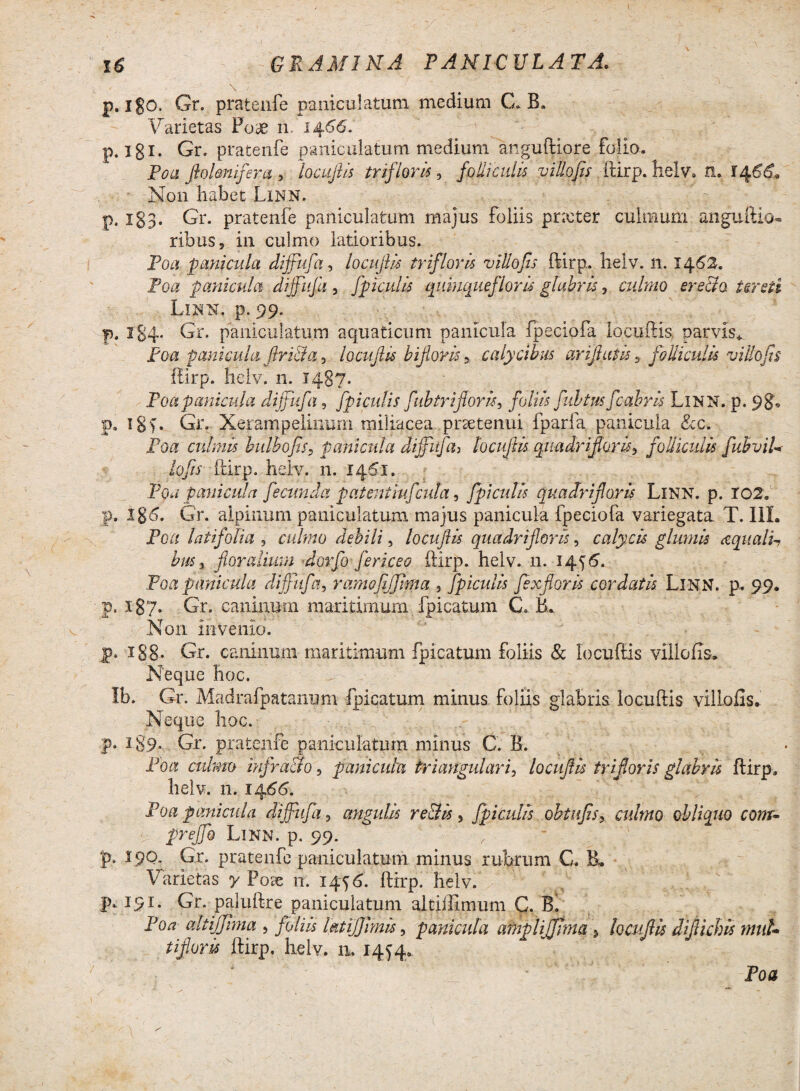 16 GRAMINA PANICULATA.
p. 180. Gr. pratenſe paniculatum medium C. B.
Varietas Poæ n. 1466.
p. 181. Gr. pratenſe paniculatum medium anguſtiore folio.
Poa ſtolonifera, locuſtis trifloris, folliculis villoſis ſtirp. helv. n. 1466.
Non habet LINN.
p. 183. Gr. pratenſe paniculatum majus foliis præter culmum anguſtio-
ribus, in culmo latioribus.
Poa panicula diffuſa, locuſtis trifloris villoſis ſtirp. helv. n. 1462.
Poa panicula diffuſa, ſpiculis quinquefloris glabris, culmo erecto tereti
LINN. p. 99.
p. 184. Gr. paniculatum aquaticum panicula ſpecioſa locuſtis parvis.
Poa panicula ſtricta, locuſtis bifloris, calycibus ariſtatis, folliculis villoſis
ſtirp. helv. n. 1487.
Poa panicula diffuſa, ſpiculis ſubtrifloris, foliis ſubtus ſcabris LINN. p. 98.
p. 185. Gr. Xerampelinum miliacea prætenui ſparſa panicula &c.
Poa culmis bulboſis, panicula diffuſa, locuſtis quadrifloris, folliculis ſubvil-
loſis ſtirp. helv. n. 1461.
Poa panicula ſecunda patentiuſcula, ſpiculis quadrifloris LINN. p. 102.
p. 186. Gr. alpinum paniculatum majus panicula ſpecioſa variegata T. III.
Poa latifolia, culmo debili, locuſtis quadrifloris, calycis glumis æquali-
bus, floralium dorſo ſericeo ſtirp. helv. n. 1456.
Poa panicula diffuſa, ramoſiſſima, ſpiculis ſexfloris cordatis LINN. p. 99.
p. 187. Gr. caninum maritimum ſpicatum C. B.
Non invenio.
p. 188. Gr. caninum maritimum ſpicatum foliis & locuſtis villoſis.
Neque hoc.
Ib. Gr. Madraſpatanum ſpicatum minus foliis glabris locuſtis villoſis.
Neque hoc.
p. 189. Gr. pratenſe paniculatum minus C. B.
Poa culmo infracto, panicula triangulari, locuſtis trifloris glabris ſtirp.
helv. n. 1466.
Poa panicula diffuſa, angulis rectis, ſpiculis obtuſis, culmo obliquo com-
preſſo LINN. p. 99.
p. 190. Gr. pratenſe paniculatum minus rubrum C. B.
Varietas γ Poæ n. 1456. ſtirp. helv.
p. 191. Gr. paluſtre paniculatum altiſſimum C. B.
Poa altiſſima, foliis latiſſimis, panicula ampliſſima, locuſtis diſtichis mul-
tifloris ſtirp. helv. n. 1454.
Poa